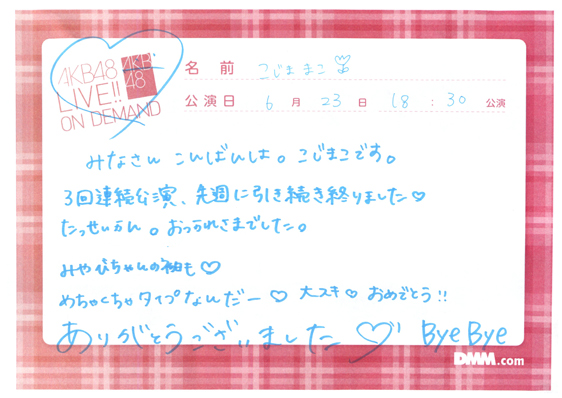 AKB48
LIVE!!
ON DEMAND
AKB
48
名前 こじままこ
公演日 6月23日 18:30 公演
みなさん こんばんは。こじまこです。
3回連続公演、先週に引き続き終りました♡
たっせいかん。おつかれさまでした。
みやびちゃんの袖も♡
めちゃくちゃタイプなんだー♡ 大スキ♡ おめでとう!!
ありがとうございました♡ ByeBye
DMM.com